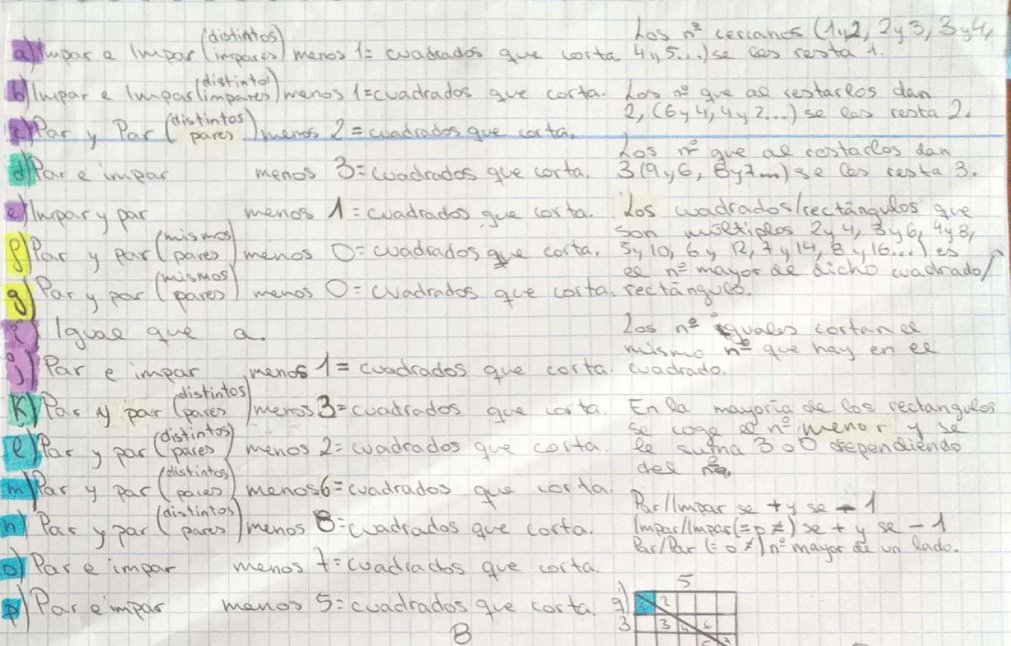 a) Impar e Impar (distintos impares) menos 1 = cuadrados que corta.
b) Impar e Impar (distintos impares) menos 1 = cuadrados que corta.
c) Par y Par (distintos pares) menos 2 = cuadrados que corta.
d) Par e impar menos 3 = cuadrados que corta.
e) Impar y par menos 1 = cuadrados que corta.
f) Par y par (mismos pares) menos 0 = cuadrados que corta.
g) Par y par (mismos pares) menos 0 = cuadrados que corta.
i) Igual que a.
j) Par e impar menos 1 = cuadrados que corta.
k) Par y par (distintos pares) menos 3 = cuadrados que corta.
l) Par y par (distintos pares) menos 2 = cuadrados que corta.
m) Par y par (distintos pares) menos 6 = cuadrados que corta.
n) Par y par (distintos pares) menos 8 = cuadrados que corta.
o) Par e impar menos 7 = cuadrados que corta.
p) Par e impar menos 5 = cuadrados que corta.
8
Los nº cercanos (1y2, 2y3, 3y4,
4y5...) se les resta 1.
Los nº que al restarlos dan
2, (6y4, 4y2...) se les resta 2.
Los nº que al restarlos dan
3 (9y6, 7...) se les resta 3.
Los cuadrados/rectángulos que
son múltiplos 2y4, 3y6, 4y8,
5y10, 6y12, 7y14, 8y16... es
el nº mayor de dicho cuadrado/
rectángulo.
Los nº iguales cortan el
mismo nº que hay en el
cuadrado.
En la mayoría de los rectangulos
se coge el nº menor y se
le suma 3 o 0 dependiendo
del nº.
Par/Impar se + y se - 1
Impar/Impar (= o ≠) se + y se - 1
Par/Par (= o ≠) nº mayor de un lado.
5
3
2
3 4 6